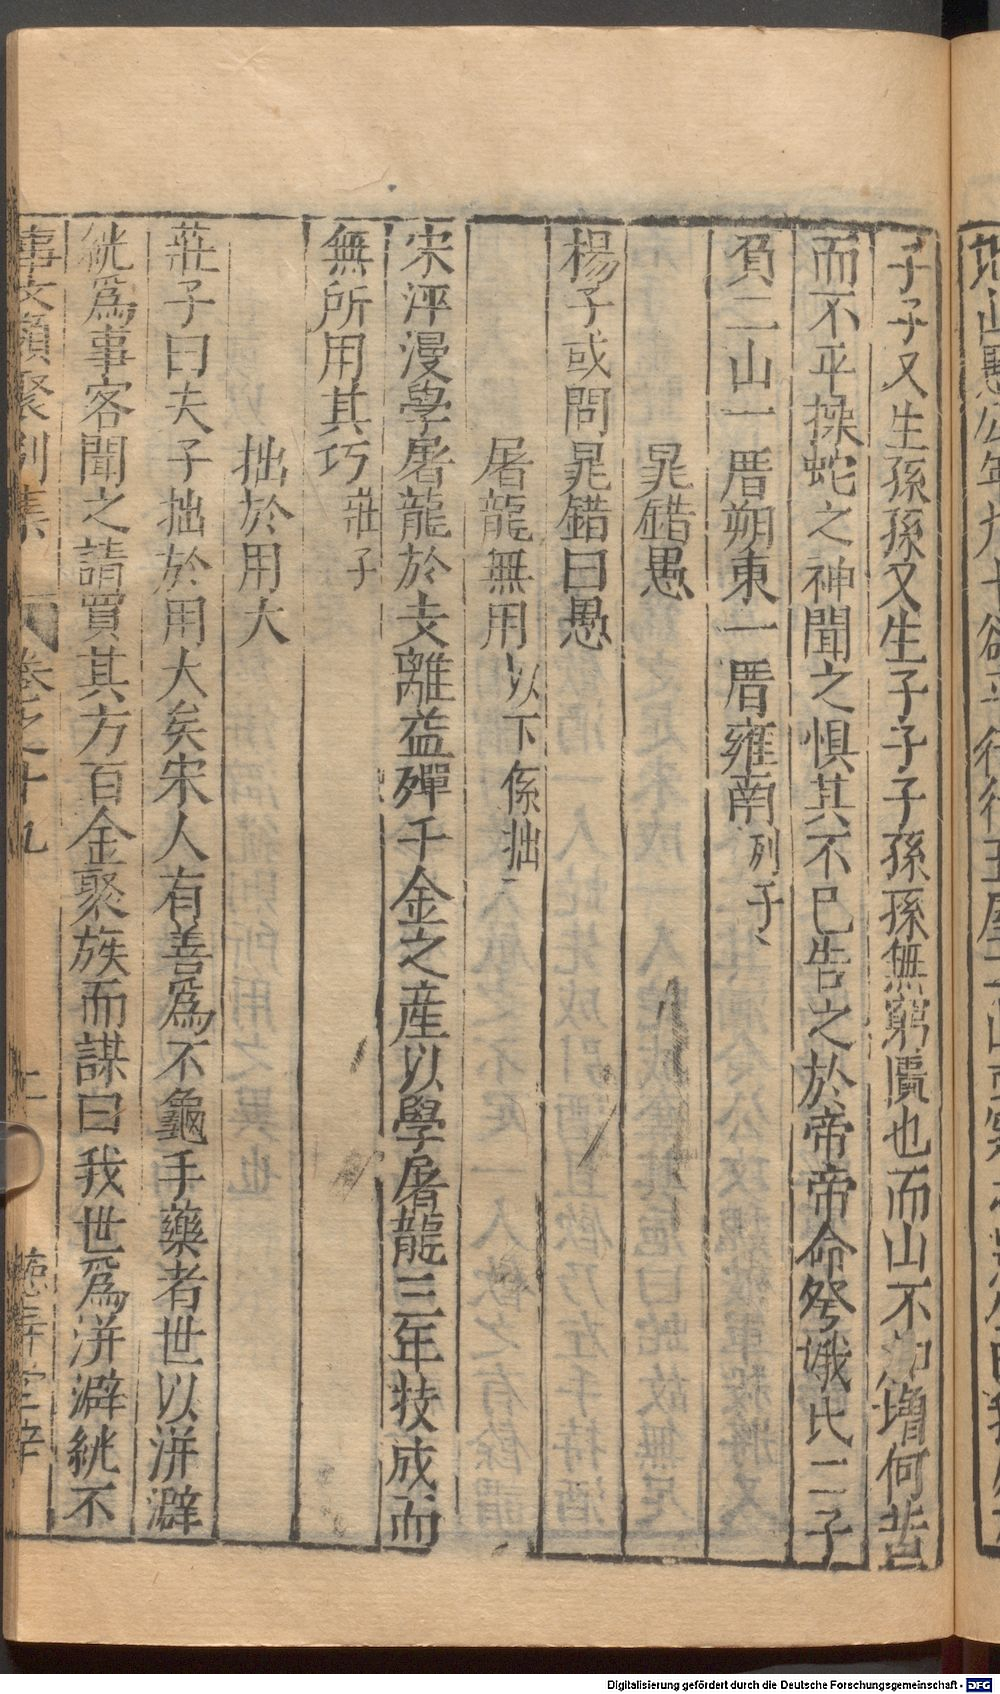 子子又生孫孫又生子子子孫孫無窮匱也而山不加增何苦
而不平操蛇之神聞之懼其不已告之於帝帝命夸娥氏二子
負二山一厝朔東一厝雍南列子
晁錯愚
楊子或問晁錯曰愚
屠龍無用以下係拙
宋泙漫學屠龍於支離益殫千金之產以學屠龍三年技成而
無所用其巧莊子
拙於用大
莊子曰夫子拙於用大矣宋人有善爲不龜手藥者世以洴澼
絖爲事客聞之請買其方百金聚族而謀曰我世爲洴澼絖不
事文類聚別集 卷之十九
Digitalisierung gefördert durch die Deutsche Forschungsgemeinschaft - DFG